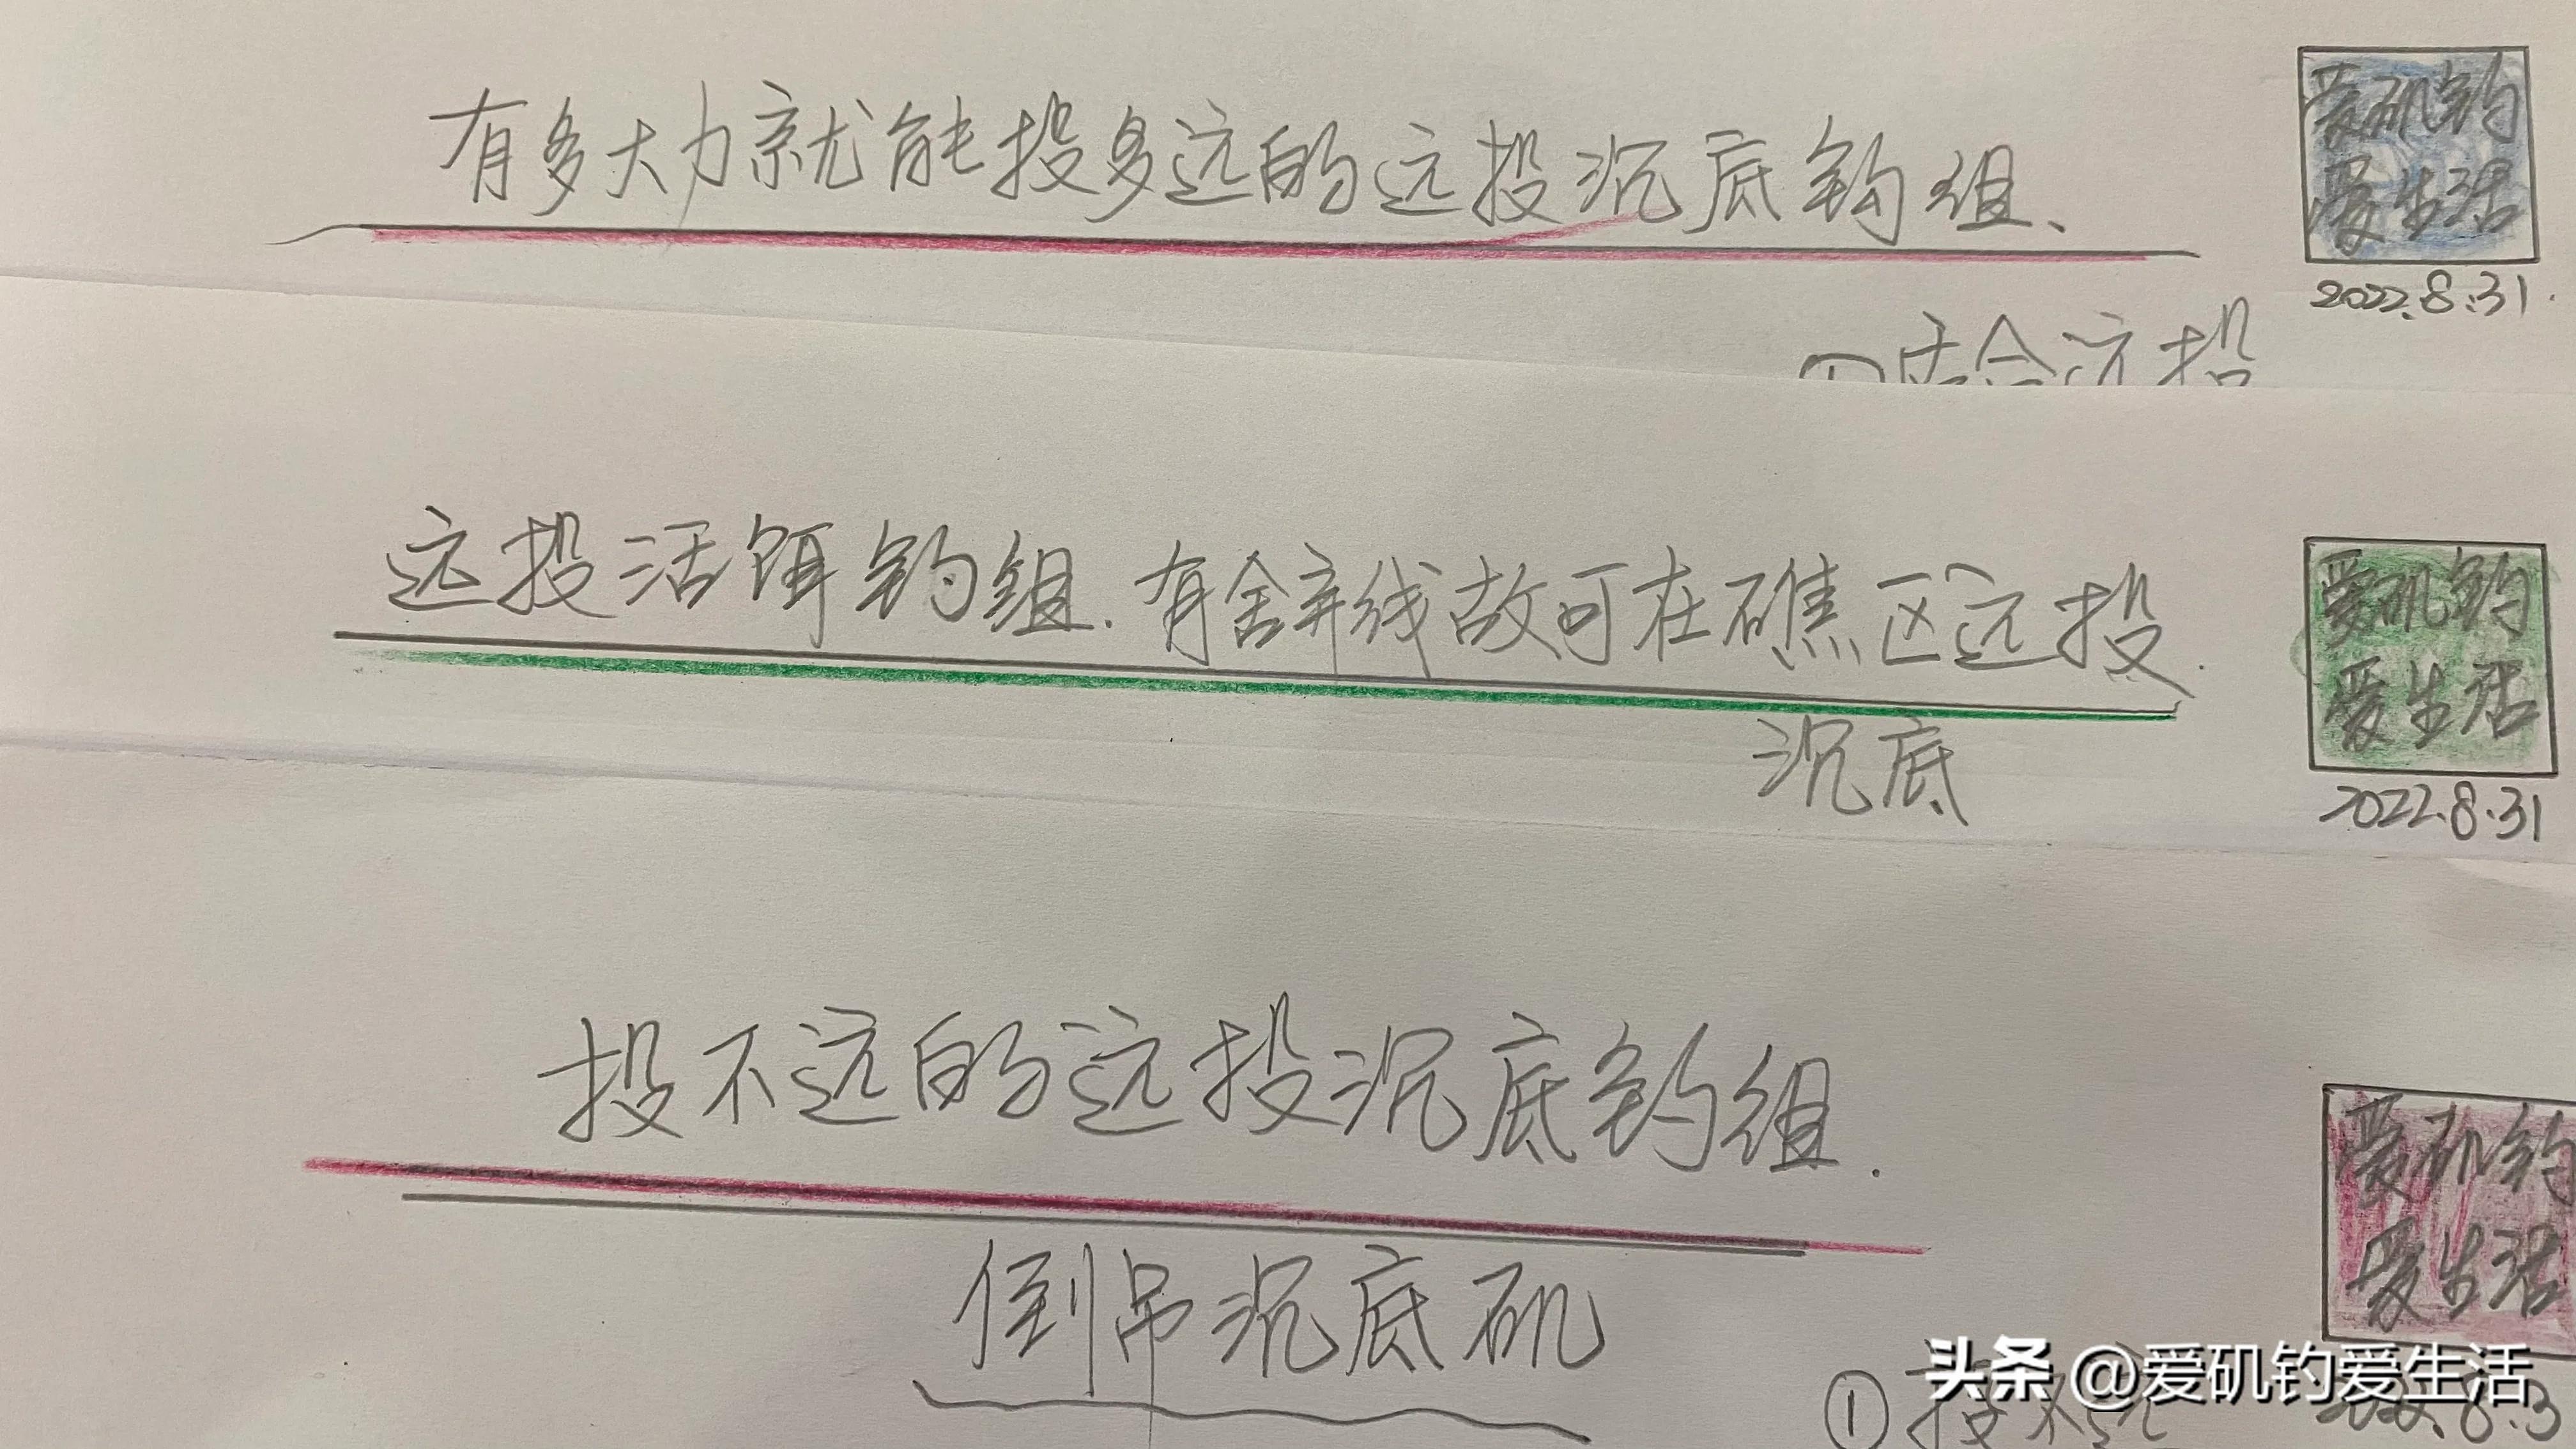 有多大力就能投多远的远投沉底钓组、
爱矶钓
爱生活
2022.8.31.
远投活饵钓组.有舍弃线故可在礁区远投.
沉底
爱矶钓
爱生活
2022.8.31
投不远的远投沉底钓组.
倒吊沉底矶
爱矶钓
爱生活
①
头条 @爱矶钓爱生活